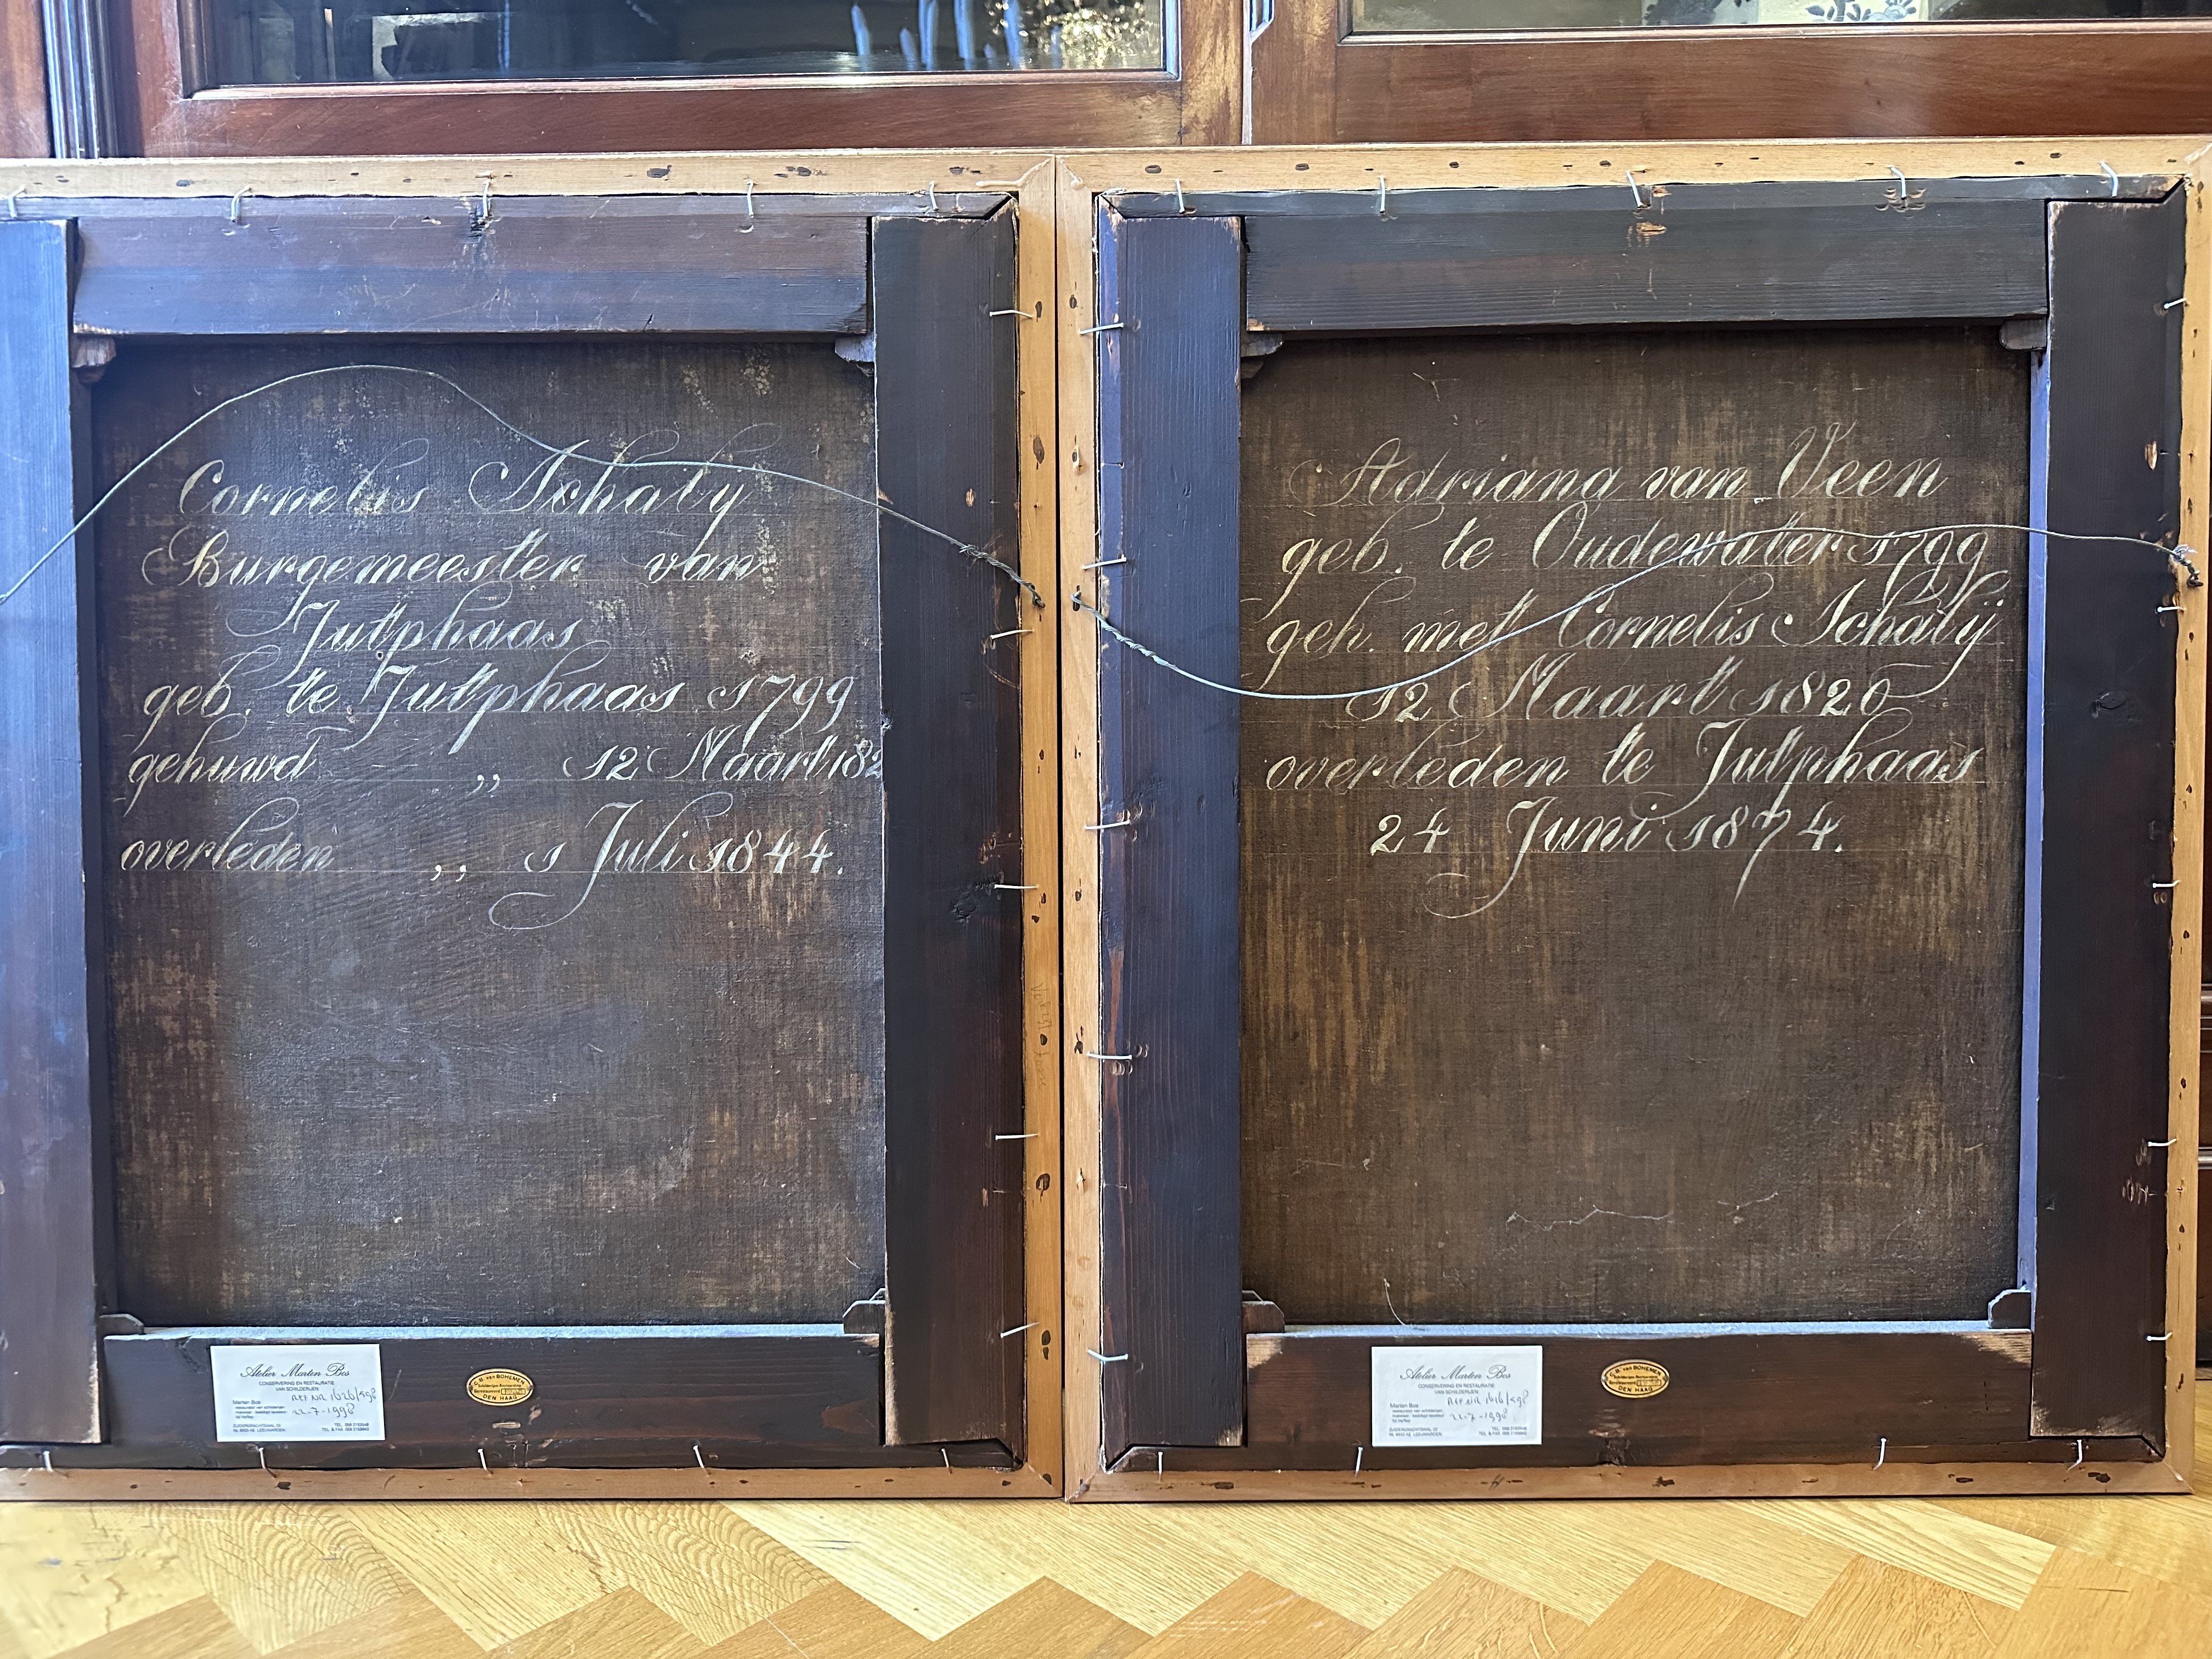 Cornelis Schalij
Burgemeester van
Jutphaas
geb. te Jutphaas 1799
gehuwd ,, 12 Maart 182
overleden ,, 1 Juli 1844.
Atelier Marten Bos
CONSERVERING EN RESTAURATIE
VAN SCHILDERIJEN
REF NR 1626/598
Marten Bos
22-7-1998
B. van BOHEMEN
DEN HAAG
Adriana van Veen
geb. te Oudewater 1799
geh. met Cornelis Schalij
12 Maart 1820
overleden te Jutphaas
24 Juni 1874.
Atelier Marten Bos
CONSERVERING EN RESTAURATIE
VAN SCHILDERIJEN
REF NR 1616/598
Marten Bos
22-7-1998
B. van BOHEMEN
DEN HAAG